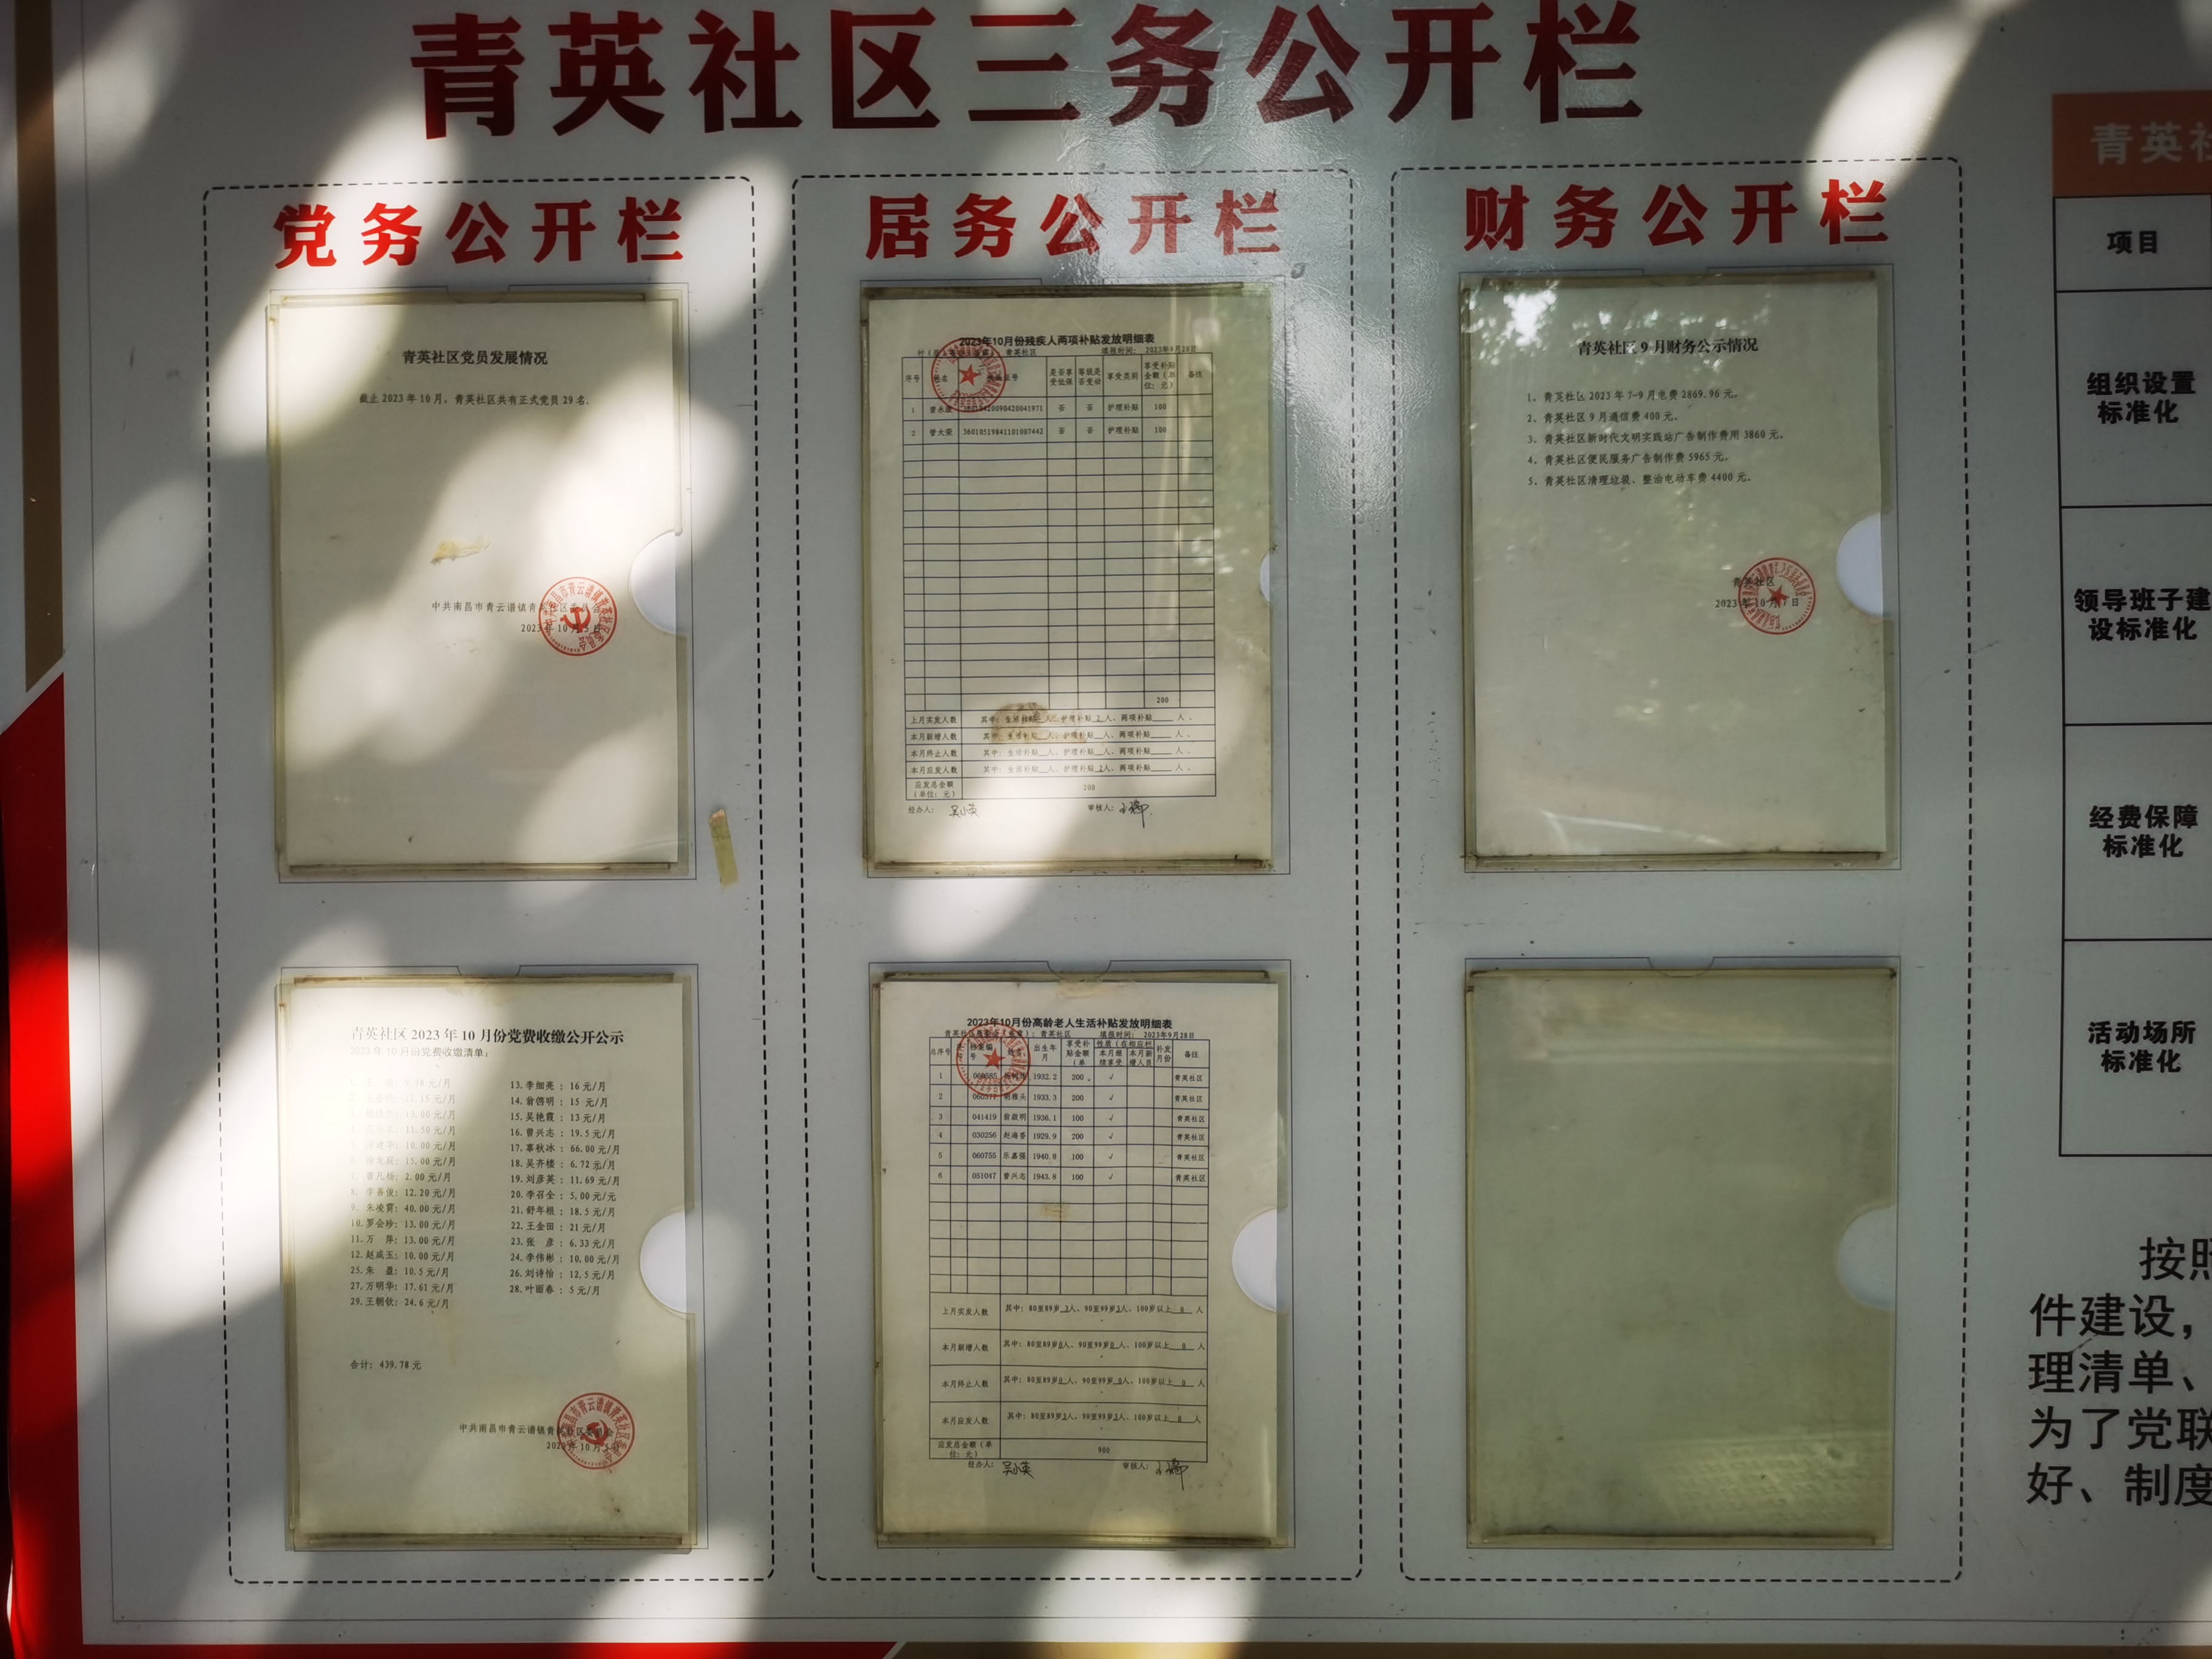 青英社区三务公开栏
党务公开栏
青英社区党员发展情况
截止 2023 年 10 月，青英社区共有正式党员 29 名.
中共南昌市青云谱镇青英社区委员会
2023 年 10 月 5 日
青英社区 2023 年 10 月份党费收缴公开公示
2023 年 10 月份党费收缴清单：
7. 曾凡杨: 2.00 元/月
8. 李善俊: 12.20 元/月
9. 朱凌霄: 40.00 元/月
10. 罗会珍: 13.00 元/月
11. 万 萍: 13.00 元/月
12. 赵成玉: 10.00 元/月
25. 朱 盈: 10.5 元/月
27. 万明华: 17.61 元/月
29. 王朝钦: 24.6 元/月
13. 李细亮 : 16 元/月
14. 俞啓明 : 15 元/月
15. 吴艳霞 : 13 元/月
16. 曾兴志 : 19.5 元/月
17. 事秋冰 : 66.00 元/月
18. 吴齐楼 : 6.72 元/月
19. 刘彦英 : 11.69 元/月
20. 李召全 : 5.00 元/元
21. 舒年根 : 18.5 元/月
22. 王金田 : 21 元/月
23. 张 彦 : 6.33 元/月
24. 李伟彬 : 10.00 元/月
26. 刘诗怡 : 12.5 元/月
28. 叶丽春 : 5 元/月
合计: 439.78 元
中共南昌市青云谱镇青英社区委员会
2023 年 10 月 5 日
居务公开栏
2023年10月份残疾人两项补贴发放明细表
青英社区 填报时间： 2023年9月28日
序号 姓名 是否享受低保 等级是否变动 享受类别 享受补贴金额（单位：元） 备注
1 否 否 护理补贴 100
2 曾大荣 36010519841101007442 否 否 护理补贴 100
200
上月实发人数 其中：生活补贴__人、护理补贴_2_人、两项补贴____人．
本月新增人数 其中：生活补贴__人、护理补贴__人、两项补贴____人．
本月终止人数 其中：生活补贴__人、护理补贴__人、两项补贴____人．
本月应发人数 其中：生活补贴__人、护理补贴_2人、两项补贴____人．
应发总金额（单位：元） 200
经办人： 吴小英 审核人：
2023年10月份高龄老人生活补贴发放明细表
青英社区 填报时间： 2023年9月28日
总序号 档案编号 姓名 出生年月 享受补贴金额（单 性质（在相应栏 本月继续享受 本月新增人员 补发月份 备注
1 060585 1932.2 200 √ 青英社区
2 胡雅头 1933.3 200 √ 青英社区
3 041419 俞啟明 1936.1 100 √ 青英社区
4 030256 赵海香 1929.9 200 √ 青英社区
5 060755 乐嘉强 1940.8 100 √ 青英社区
6 051047 曾兴志 1943.8 100 √ 青英社区
上月实发人数 其中：80至89岁_3人、90至99岁3人、100岁以上__0__人
本月新增人数 其中：80至89岁0人、90至99岁0人、100岁以上__0__人
本月终止人数 其中：80至89岁0人、90至99岁0人、100岁以上__0__人
本月应发人数 其中：80至89岁3人、90至99岁3人、100岁以上__0__人
应发总金额（单位：元） 900
经办人： 吴小英 审核人：
财务公开栏
青英社区 9 月财务公示情况
1、青英社区 2023 年 7-9 月电费 2869.96 元。
2、青英社区 9 月通信费 400 元。
3、青英社区新时代文明实践站广告制作费用 3860 元。
4、青英社区便民服务广告制作费 5965 元。
5、青英社区清理垃圾、整治电动车费 4400 元。
青英社区
2023 年 10 月 7 日
青英社
项目
组织设置
标准化
领导班子建
设标准化
经费保障
标准化
活动场所
标准化
按照
件建设，
理清单、
为了党联
好、制度